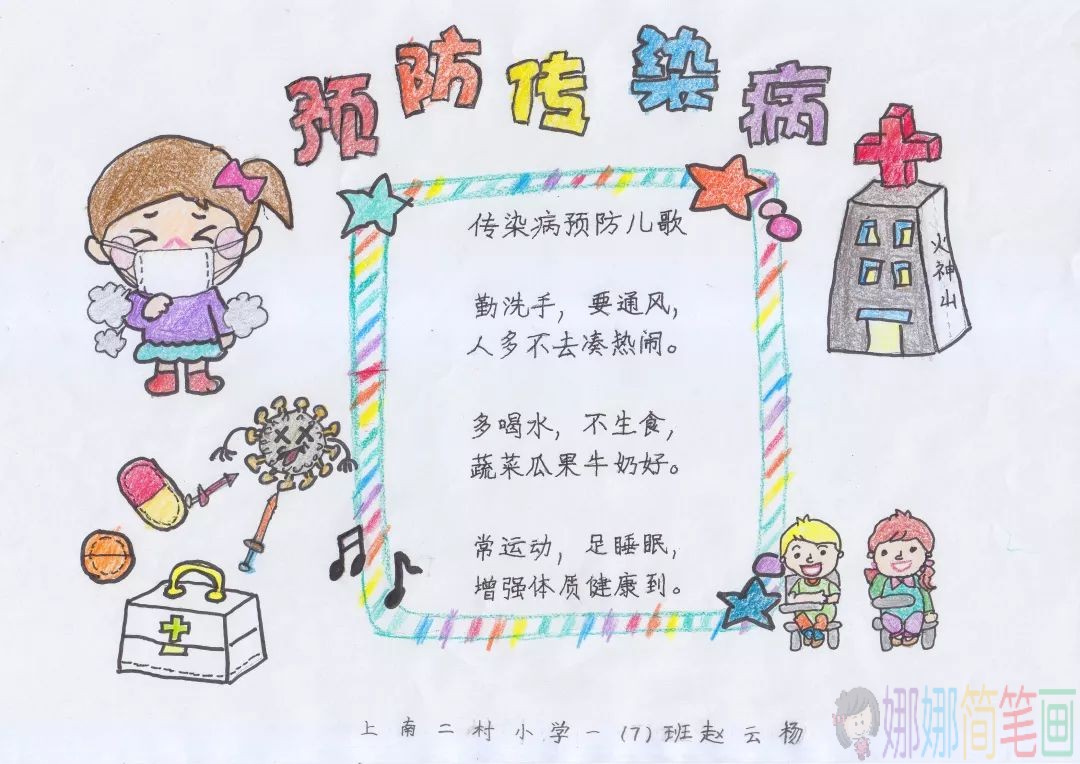 预防传染病
传染病预防儿歌
火神山
勤洗手，要通风，
人多不去凑热闹。
多喝水，不生食，
蔬菜瓜果牛奶好。
常运动，足睡眠，
增强体质健康到。
上南二村小学一(7)班赵云杨
娜娜简笔画